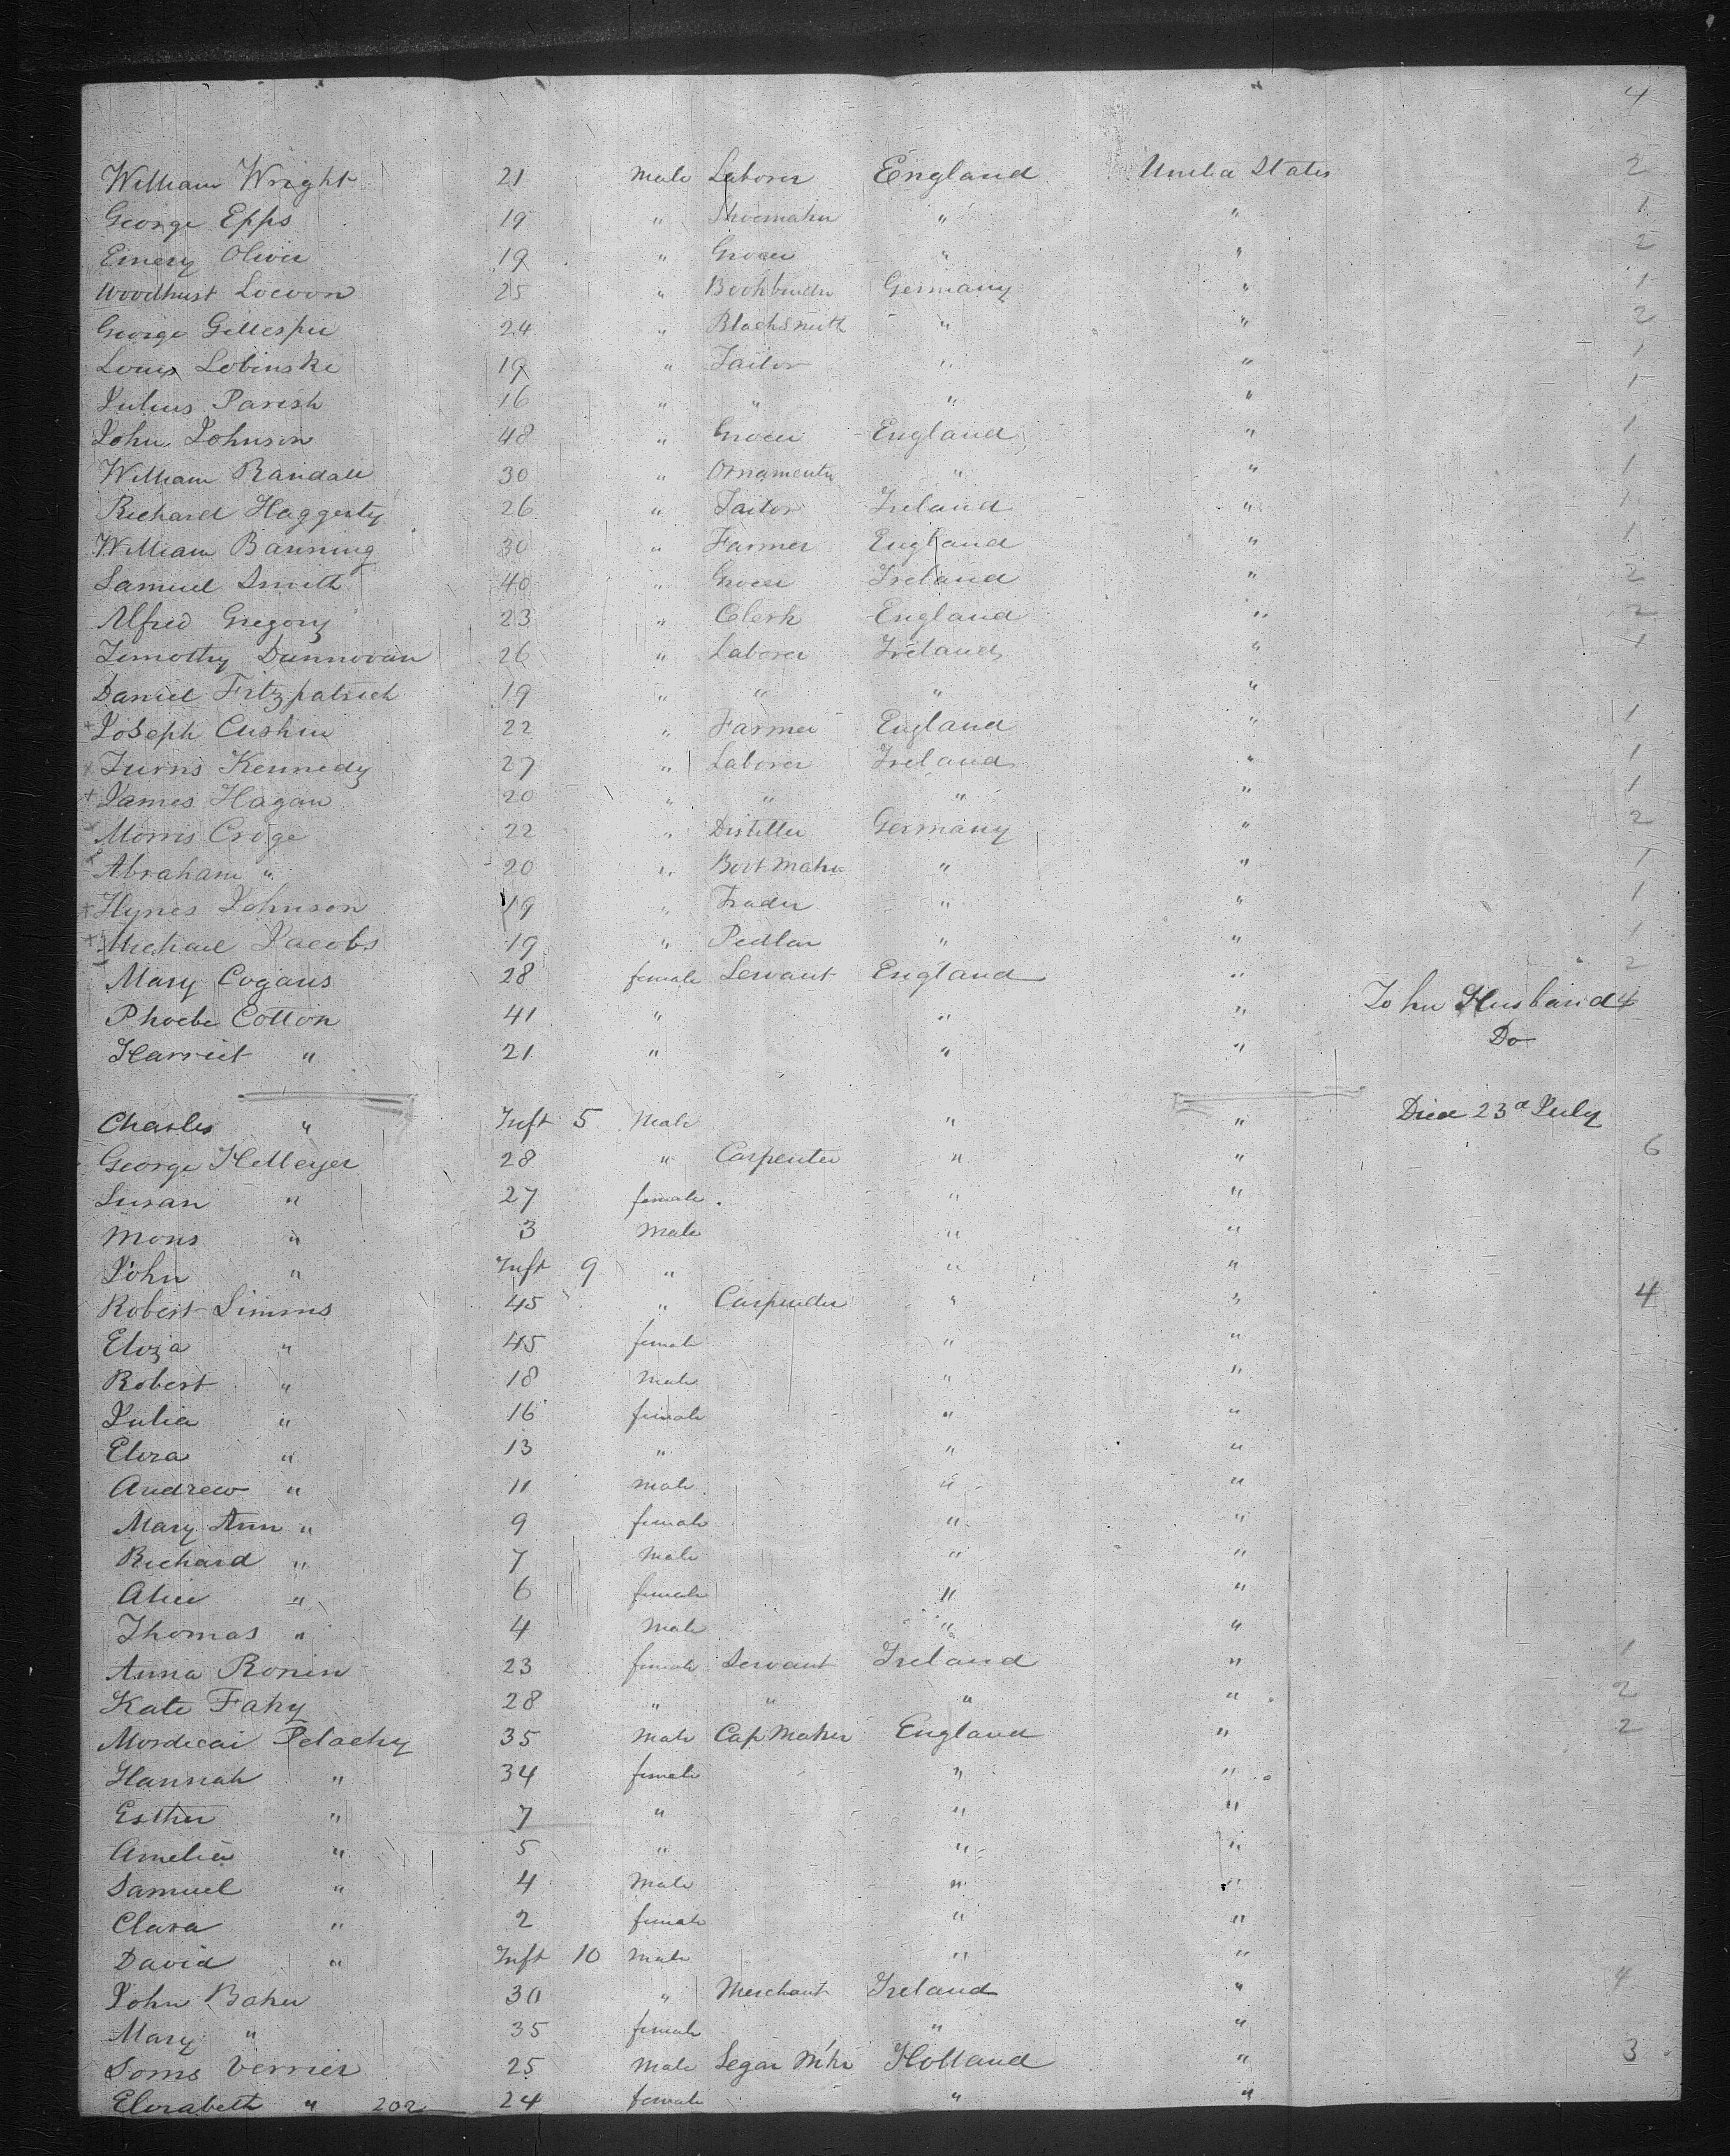 4
William Wright 21 Male Laborer England United States 2
George Epps 19 " Shoemaker " " 1
Emery Oliver 19 " Grocer " " 2
Woodhust Locoon 25 " Bookbinder Germany " 1
George Gillespie 24 " Blacksmith " " 2
Louis Lobinske 19 " Tailor " " 1
Julius Parish 16 " " " " 1
John Johnson 48 " Grocer England " 1
William Randall 30 " Ornamenter " " 1
Richard Haggerty 26 " Tailor Ireland " 1
William Banning 30 " Farmer England " 1
Samuel Smith 40 " Grocer Ireland " 2
Alfred Gregory 23 " Clerk England " 2
Timothy Dunnovan 26 " Laborer Ireland " 1
Daniel Fitzpatrick 19 " " " "
+ Joseph Cushin 22 " Farmer England " 1
Kennedy 27 " Laborer Ireland " 1
+ James Hagan 20 " " " " 1
Morris Croge 22 " Distiller Germany " 2
Abraham " 20 " Boot Maker " " 1
+ Hynes Johnson 19 " Trader " " 1
+ Michael Jacobs 19 " Pedlar " " 1
Mary Cogans 28 female Servant England " 2
Phoebe Cotton 41 " " " John Husband 4
Harriet " 21 " " " Do
Charles " Inft 5 Male " " Died 23d July
George Helleyer 28 " Carpenter " " 6
Susan " 27 female " "
Mons " 3 Male " "
John " Inft 9 " " "
Robert Simms 45 " Carpenter " " 4
Eliza " 45 female " "
Robert " 18 Male " "
Julia " 16 female " "
Eliza " 13 " " "
Andrew " 11 male " "
Mary Ann " 9 female " "
Richard " 7 Male " "
Alice " 6 female " "
Thomas " 4 Male " "
Anna Ronin 23 female Servant Ireland " 1
Kate Fahy 28 " " " " 2
Mordecai Pelachy 35 Male Cap Maker England " 2
Hannah " 34 female " "
Esther " 7 " " "
Amelia " 5 " " "
Samuel " 4 Male " "
Clara " 2 female " "
David " Inft 10 Male " "
John Baker 30 " Merchant Ireland " 4
Mary " 35 female " "
Soms Verrier 25 Male Segar Mkr Holland " 3
Elizabeth " 202 24 female " "